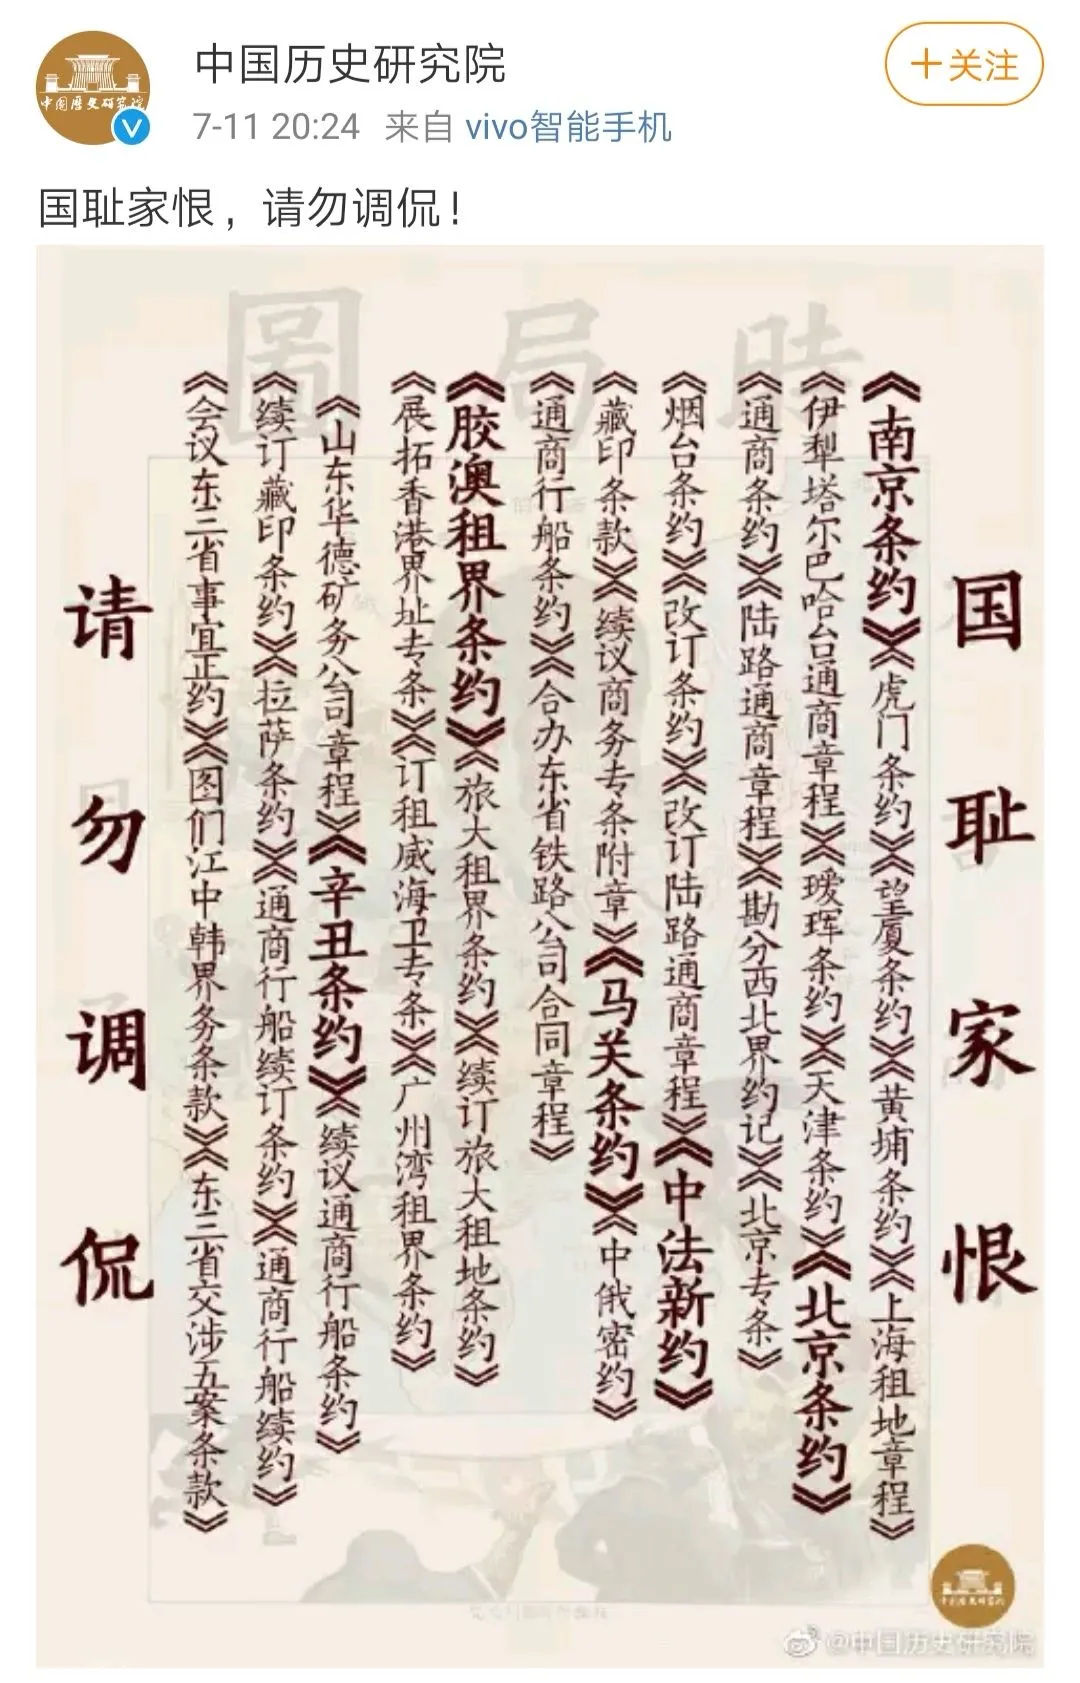 中国历史研究院
中国历史研究院
+关注
7-11 20:24 来自 vivo智能手机
国耻家恨，请勿调侃！
時局圖
国耻家恨
《南京条约》《虎门条约》《望厦条约》《黄埔条约》《上海租地章程》
《伊犁塔尔巴哈台通商章程》《瑷珲条约》《天津条约》《北京条约》
《通商条约》《陆路通商章程》《勘分西北界约记》《北京专条》
《烟台条约》《改订条约》《改订陆路通商章程》《中法新约》
《藏印条款》《续议商务专条附章》《马关条约》《中俄密约》
《通商行船条约》《合办东省铁路公司合同章程》
《胶澳租界条约》《旅大租界条约》《续订旅大租地条约》
《展拓香港界址专条》《订租威海卫专条》《广州湾租界条约》
《山东华德矿务公司章程》《辛丑条约》《续议通商行船条约》
《续订藏印条约》《拉萨条约》《通商行船续订条约》《通商行船续约》
《会议东三省事宜正约》《图们江中韩界务条款》《东三省交涉五案条款》
请勿调侃
@中国历史研究院